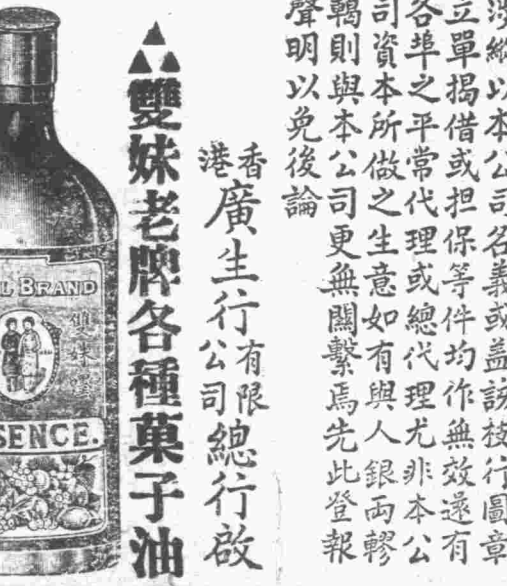 涉縱以本公司名義或盖該枝行圖章
立單揭借或担保等件均作無效還有
各埠之平常代理或總代理尤非本公
司資本所做之生意如有與人銀両轇
轕則與本公司更無關繫焉先此登報
聲明以免後論
香港廣生行有限公司總行啟
雙妹老牌各種菓子油
L BRAND
雙妹嘜
SENCE.